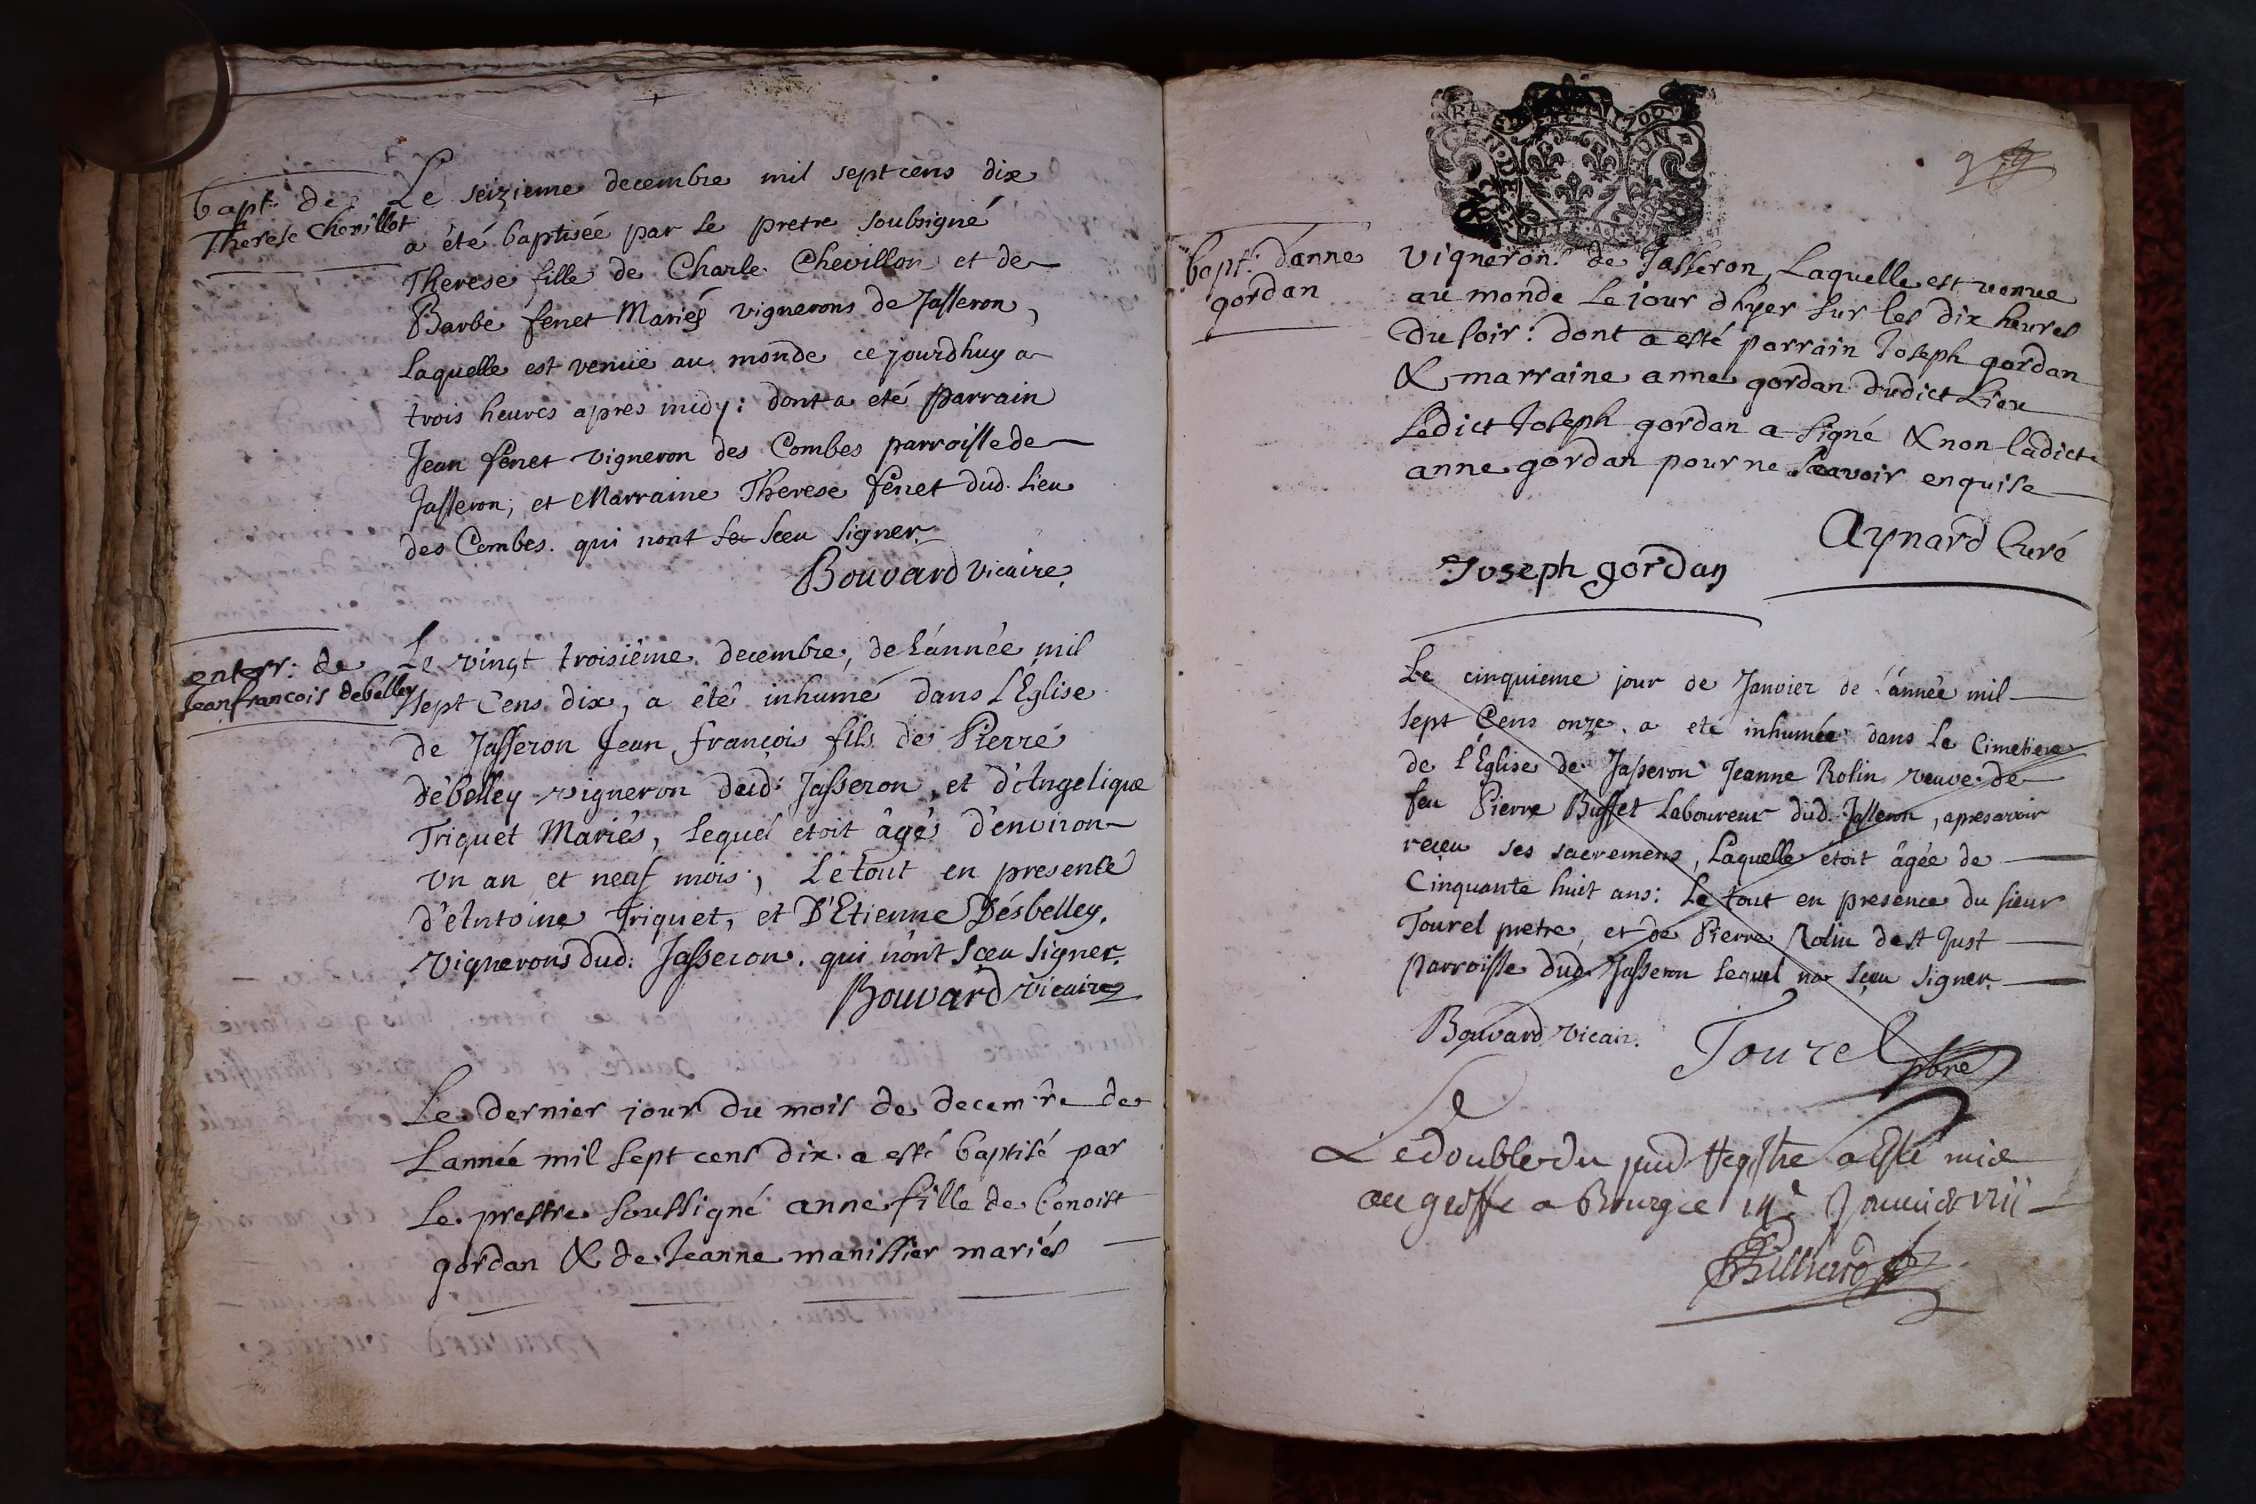 bapt. de
Therese Chevillot
Le seizieme decembre mil sept cens dix
a été baptisée par le pretre soubsigné
Therese fille de Charle Chevillon et de
Barbe fenet Mariés vignerons de Jasseron,
laquelle est venuë au monde ce jourdhuy a
trois heures apres midy: dont a eté parrain
Jean fenet vigneron des Combes parroisse de
Jasseron; et Marraine Therese fenet dud. lieu
des Combes. qui nont sceu signer.
Bouvard vicaire.
enterr: de
Jean francois debelley
Le vingt troisiême decembre, de l'année mil
sept Cens dix, a êtê inhumé dans l'Eglise
de Jasseron Jean françois fils de Pierre
débelley vigneron dud. Jasseron, et d'Angelique
Triquet Mariés, lequel etoit âgé d'environ
un an et neuf mois; Le tout en presence
d'Antoine Triquet, et D'Etienne Désbelley,
vignerons dud: Jasseron. qui n'ont sceu signer.
Bouvard vicaire
Le dernier jour du mois de decembre de
Lannée mil sept cens dix a esté baptisé par
le prestre soussigné anne fille de benoist
gordan & de Jeanne manissier mariés
bapt: d'anne
gordan
vignerons de Jasseron, laquelle est venue
au monde le jour dhyer sur les dix heures
du soir: dont a esté parrain Joseph gordan
& marraine anne gordan dudict lieu
ledict Joseph gordan a signé & non ladicte
anne gordan pour ne scavoir enquise
Aynard Curé
Joseph gordan
Le cinquieme jour de Janvier de l'année mil
sept Cens onze, a eté inhumée dans le Cimetiere
de l'Eglise de Jasseron Jeanne Rolin veuve de
feu Pierre Buffet Laboureur dud. Jasseron, apres avoir
reçeu ses sacremens, Laquelle étoit âgée de
Cinquante huit ans: Le tout en presence du sieur
Tourel pretre, et de Pierre Rolin de St Just
parroisse dud. Jasseron lequel na sçeu signer.
Bouvard vicair.
Tourel pbre
Le double du pnt Regstre a esté mis
au greffe a Bourg ce